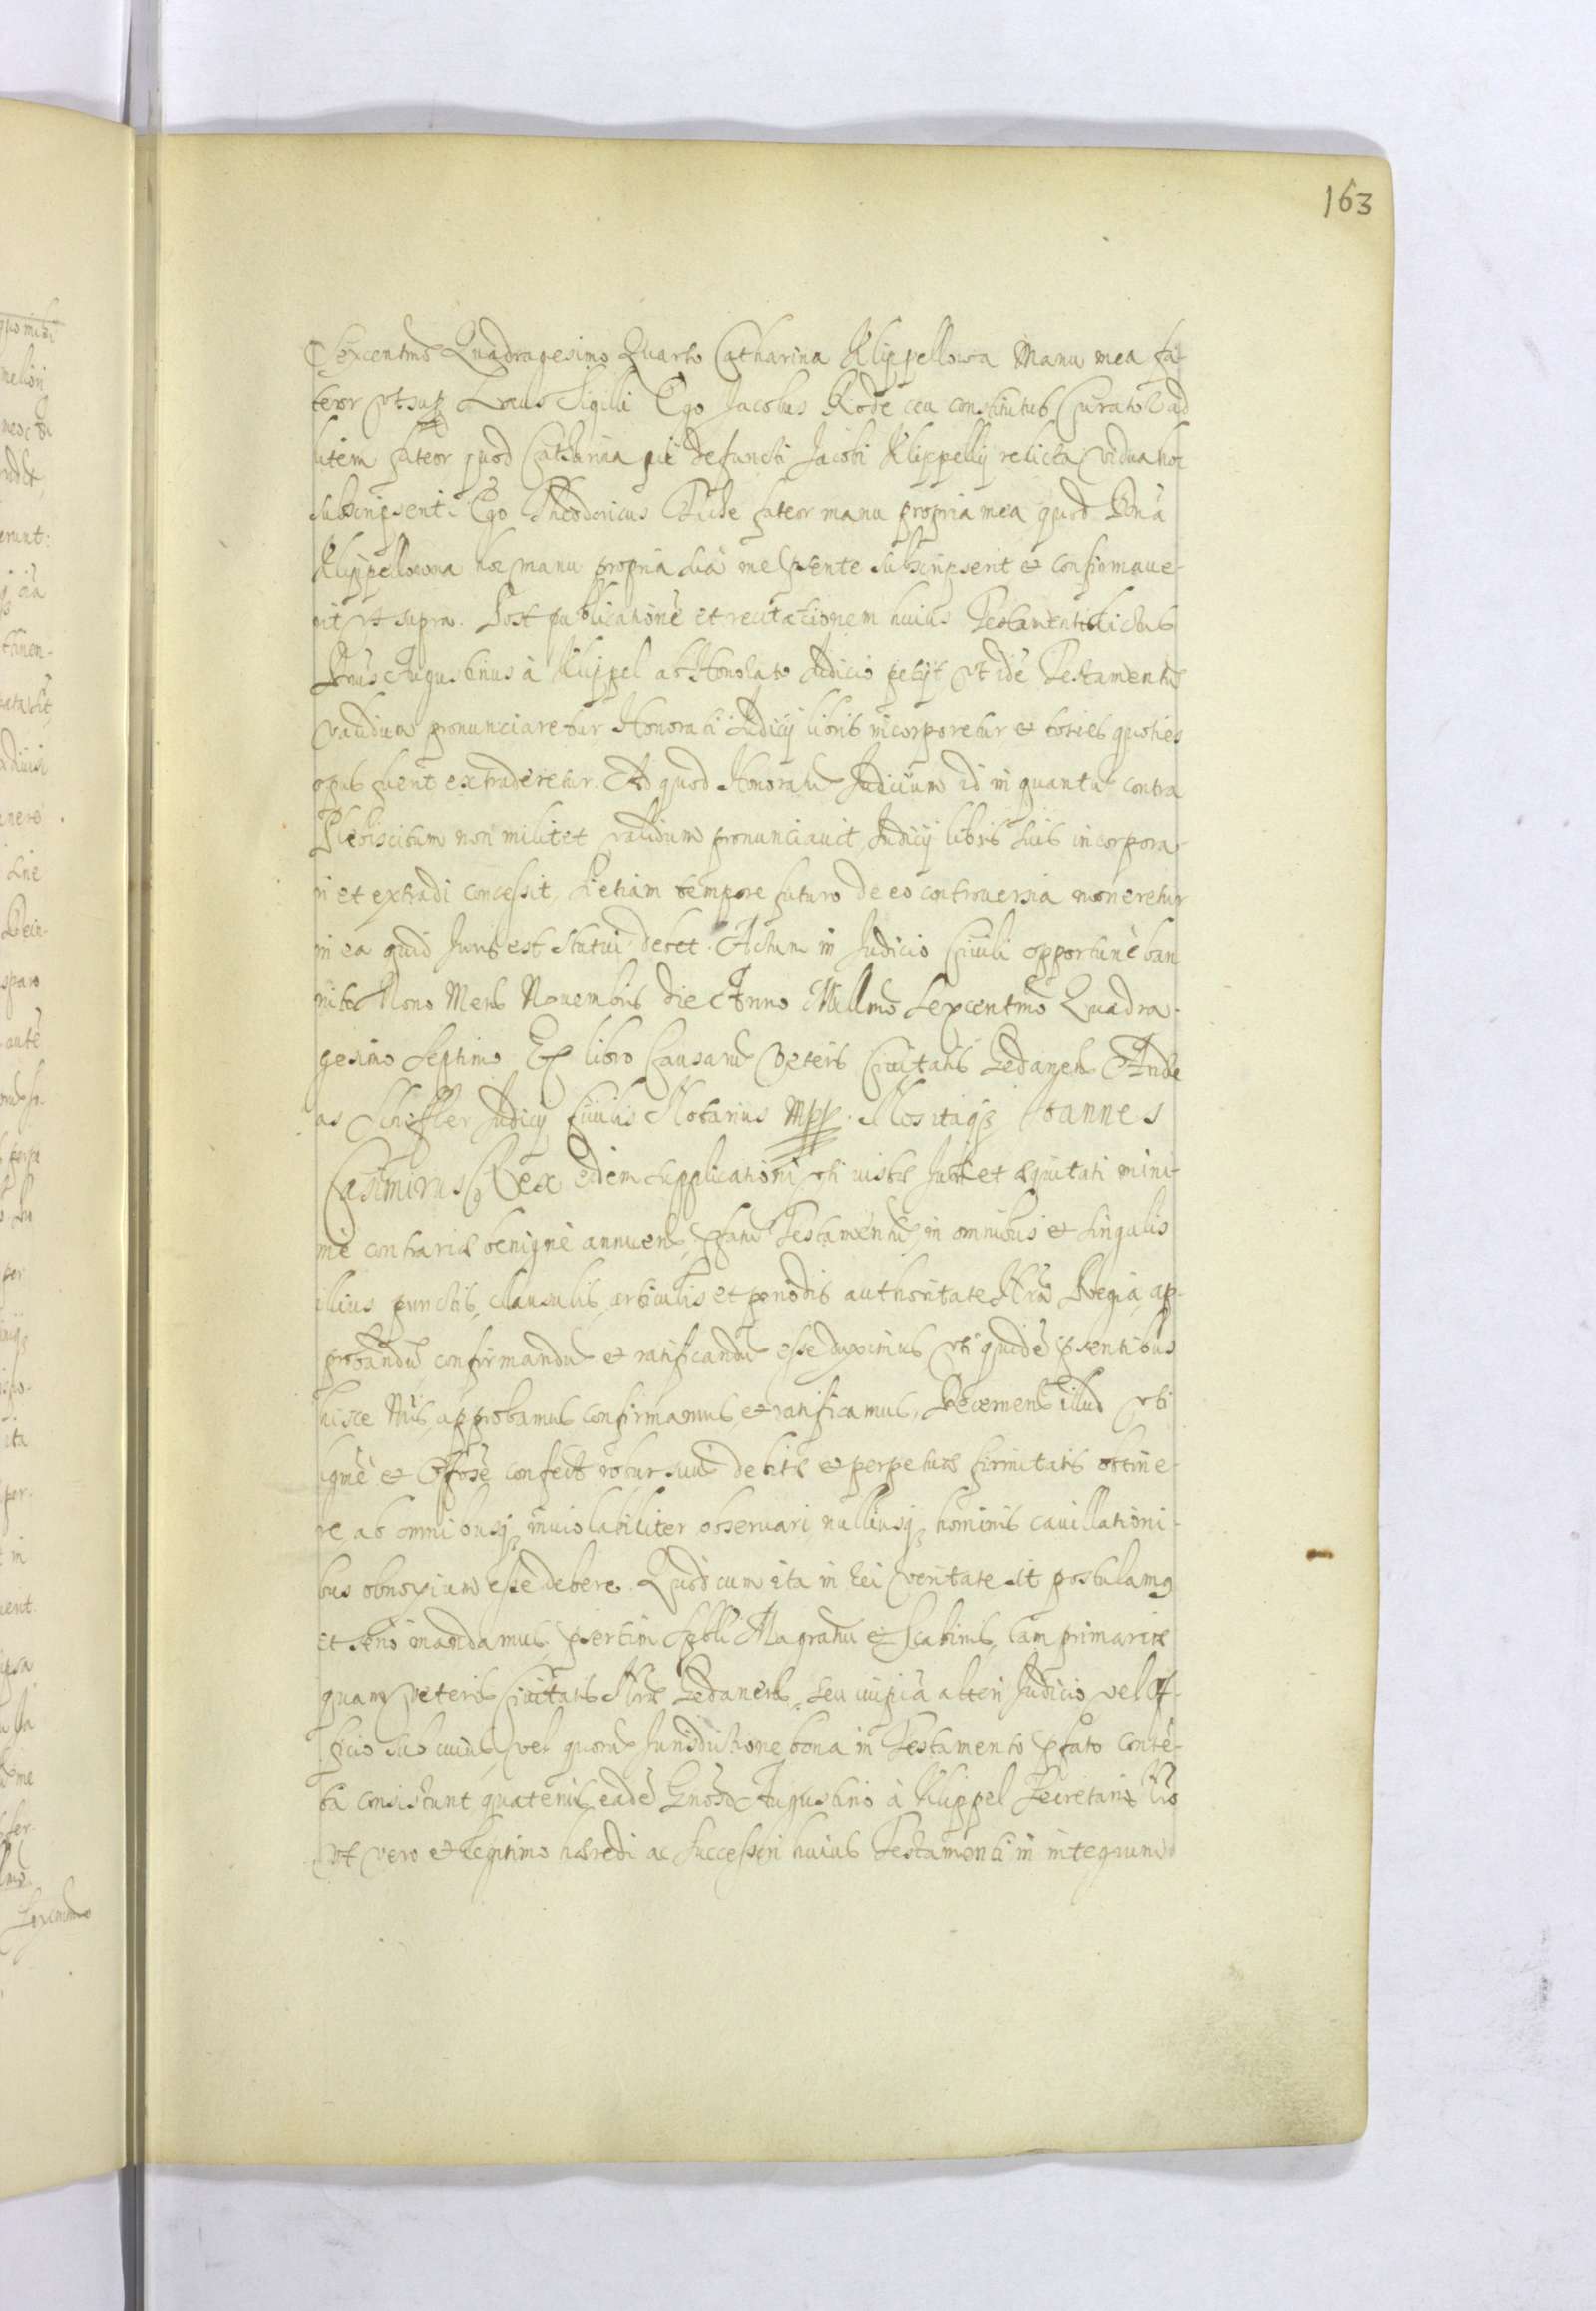 163
Sexcentmo Quadragesimo Quarto Catharina Klippellowa Manu mea fa-
teor vt sup Locus Sigilli Ego Jacobus Rode ceu constitutus Curator ad
litem fateor quod Catharina pie defuncti Jacobi Klippelly relicta vidua hoc
subscripserit. Ego Theodoricus fateor manu propria mea quod Dona
Klippellowa hoc manu propria sua me pſente subscripserit et confirmaue-
rit vt supra. Post publicationē et recitationem huius Testamenti dictus
Dnus Augustinus à Klippel ab Honorato Judicio petijt vt idē Testamentū
validum pronunciaretur Honorati Judicij libris incorporetur et toties quoties
opus fuerit extraderetur. Ad quod Honoratū Judicium id in quantū contra
Plebiscitum non militet validum pronunciauit, Judicij libris suis incorpora-
ri et extradi concessit, si etiam tempore futuro de eo controuersia moneretur
in ea quid Juris est statui debet. Actum in Judicio Ciuili opportunè ban
nito Nono Mens Nouembris die Anno Millmo Sexcentmo Quadra-
gesimo Septimo Ex libro Causarū Veteris Ciuitatis Gedanen Andre
as Judicij Ciuilis Notarius mpp. Nos itaq Joannes
Casimirus Rex eidem supplicationi vti iustæ Juri et æquitati mini-
mè contrariæ benignè annuen, pfatū Testamentū in omnibus et singulis
illius punctis, clausulis, articulis et periodis authoritate Nra Regia, ap-
probandū confirmandū et ratificandū esse duximus vti quidē pſentibus
hisce Nris approbamus confirmamus, et ratificamus, Decernens illud vti
et confect robur suū debitæ et perpetuæ firmitatis obtine-
re, ab omnibusq inuiolabiliter obseruari, nulliusq hominis cauillationi-
bus obnoxium esse debere. Quod cum ita in rei veritate sit postulamq
et seriò mandamus, pſertim Magratui et Scabinis, tam primariæ
quam veteris Ciuitatis Nræ Gedanens, seu cuipiā alteri Judicio vel Of-
ficio sub cuius vel quorū Jurisdictione bona in Testamento pfato contē-
ta consistunt quatenus eadē Gnoso Augustino à Klippel Secretario Nro
vt vero et legitimo hæredi ac Successori huius Testamenti in integrum